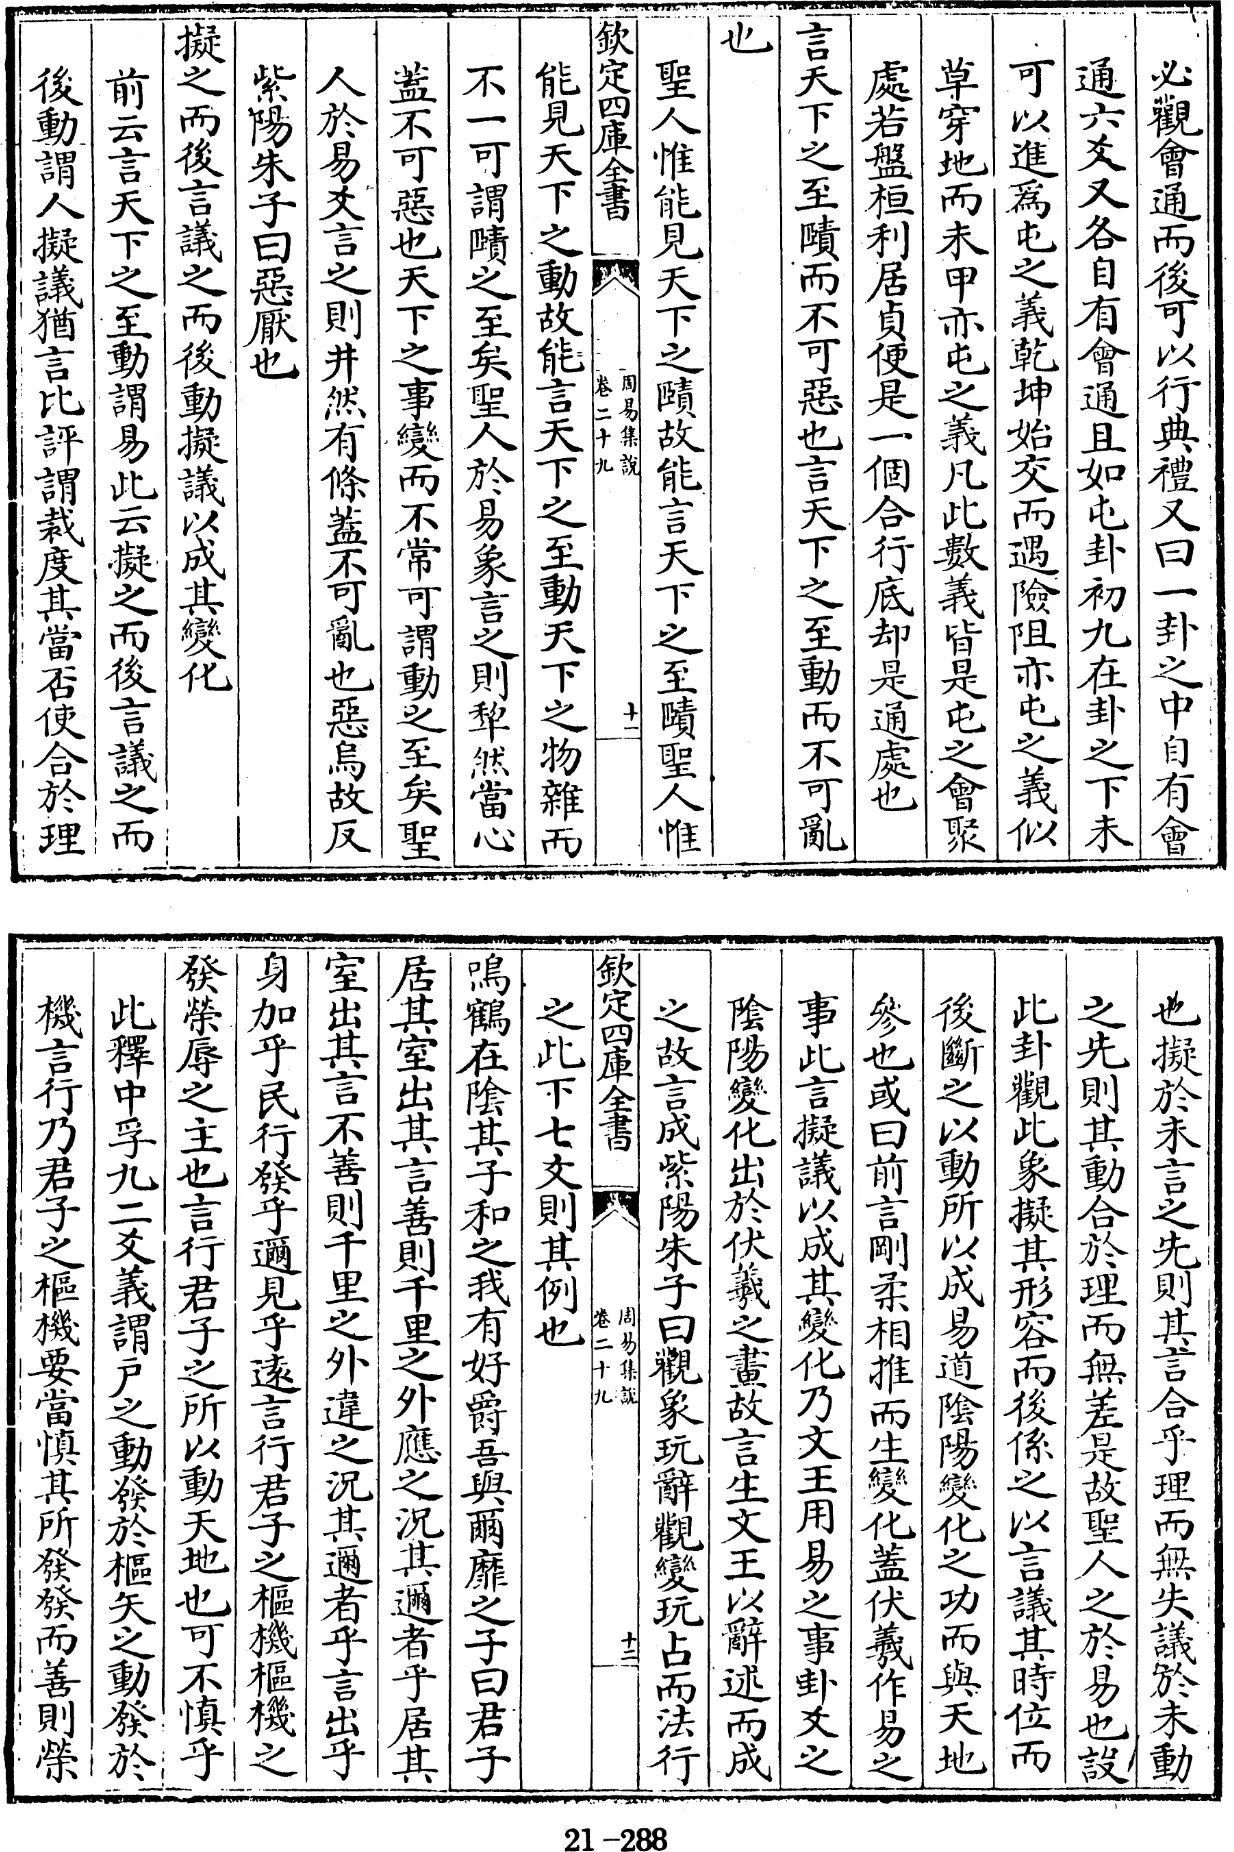 必觀會通而後可以行典禮又曰一卦之中自有會
通六爻又各自有會通且如屯卦初九在卦之下未
可以進為屯之義乾坤始交而遇險阻亦屯之義似
草穿地而未甲亦屯之義凡此數義皆是屯之會聚
處若盤桓利居貞便是一個合行底却是通處也
言天下之至賾而不可惡也言天下之至動而不可亂
也
聖人惟能見天下之賾故能言天下之至賾聖人惟
欽定四庫全書
周易集說
卷二十九
十一
能見天下之動故能言天下之至動天下之物雜而
不一可謂賾之至矣聖人於易象言之則犂然當心
蓋不可惡也天下之事變而不常可謂動之至矣聖
人於易爻言之則井然有條蓋不可亂也惡烏故反
紫陽朱子曰惡厭也
擬之而後言議之而後動擬議以成其變化
前云言天下之至動謂易此云擬之而後言議之而
後動謂人擬議猶言比評謂裁度其當否使合於理
也擬於未言之先則其言合乎理而無失議於未動
之先則其動合於理而無差是故聖人之於易也設
此卦觀此象擬其形容而後係之以言議其時位而
後斷之以動所以成易道陰陽變化之功而與天地
參也或曰前言剛柔相推而生變化蓋伏羲作易之
事此言擬議以成其變化乃文王用易之事卦爻之
陰陽變化出於伏羲之畫故言生文王以辭述而成
之故言成紫陽朱子曰觀象玩辭觀變玩占而法行
欽定四庫全書
周易集說
卷二十九
十二
之此下七爻則其例也
鳴鶴在陰其子和之我有好爵吾與爾靡之子曰君子
居其室出其言善則千里之外應之況其邇者乎居其
室出其言不善則千里之外違之況其邇者乎言出乎
身加乎民行發乎邇見乎遠言行君子之樞機樞機之
發榮辱之主也言行君子之所以動天地也可不慎乎
此釋中孚九二爻義謂戶之動發於樞矢之動發於
機言行乃君子之樞機要當慎其所發發而善則榮
21-288